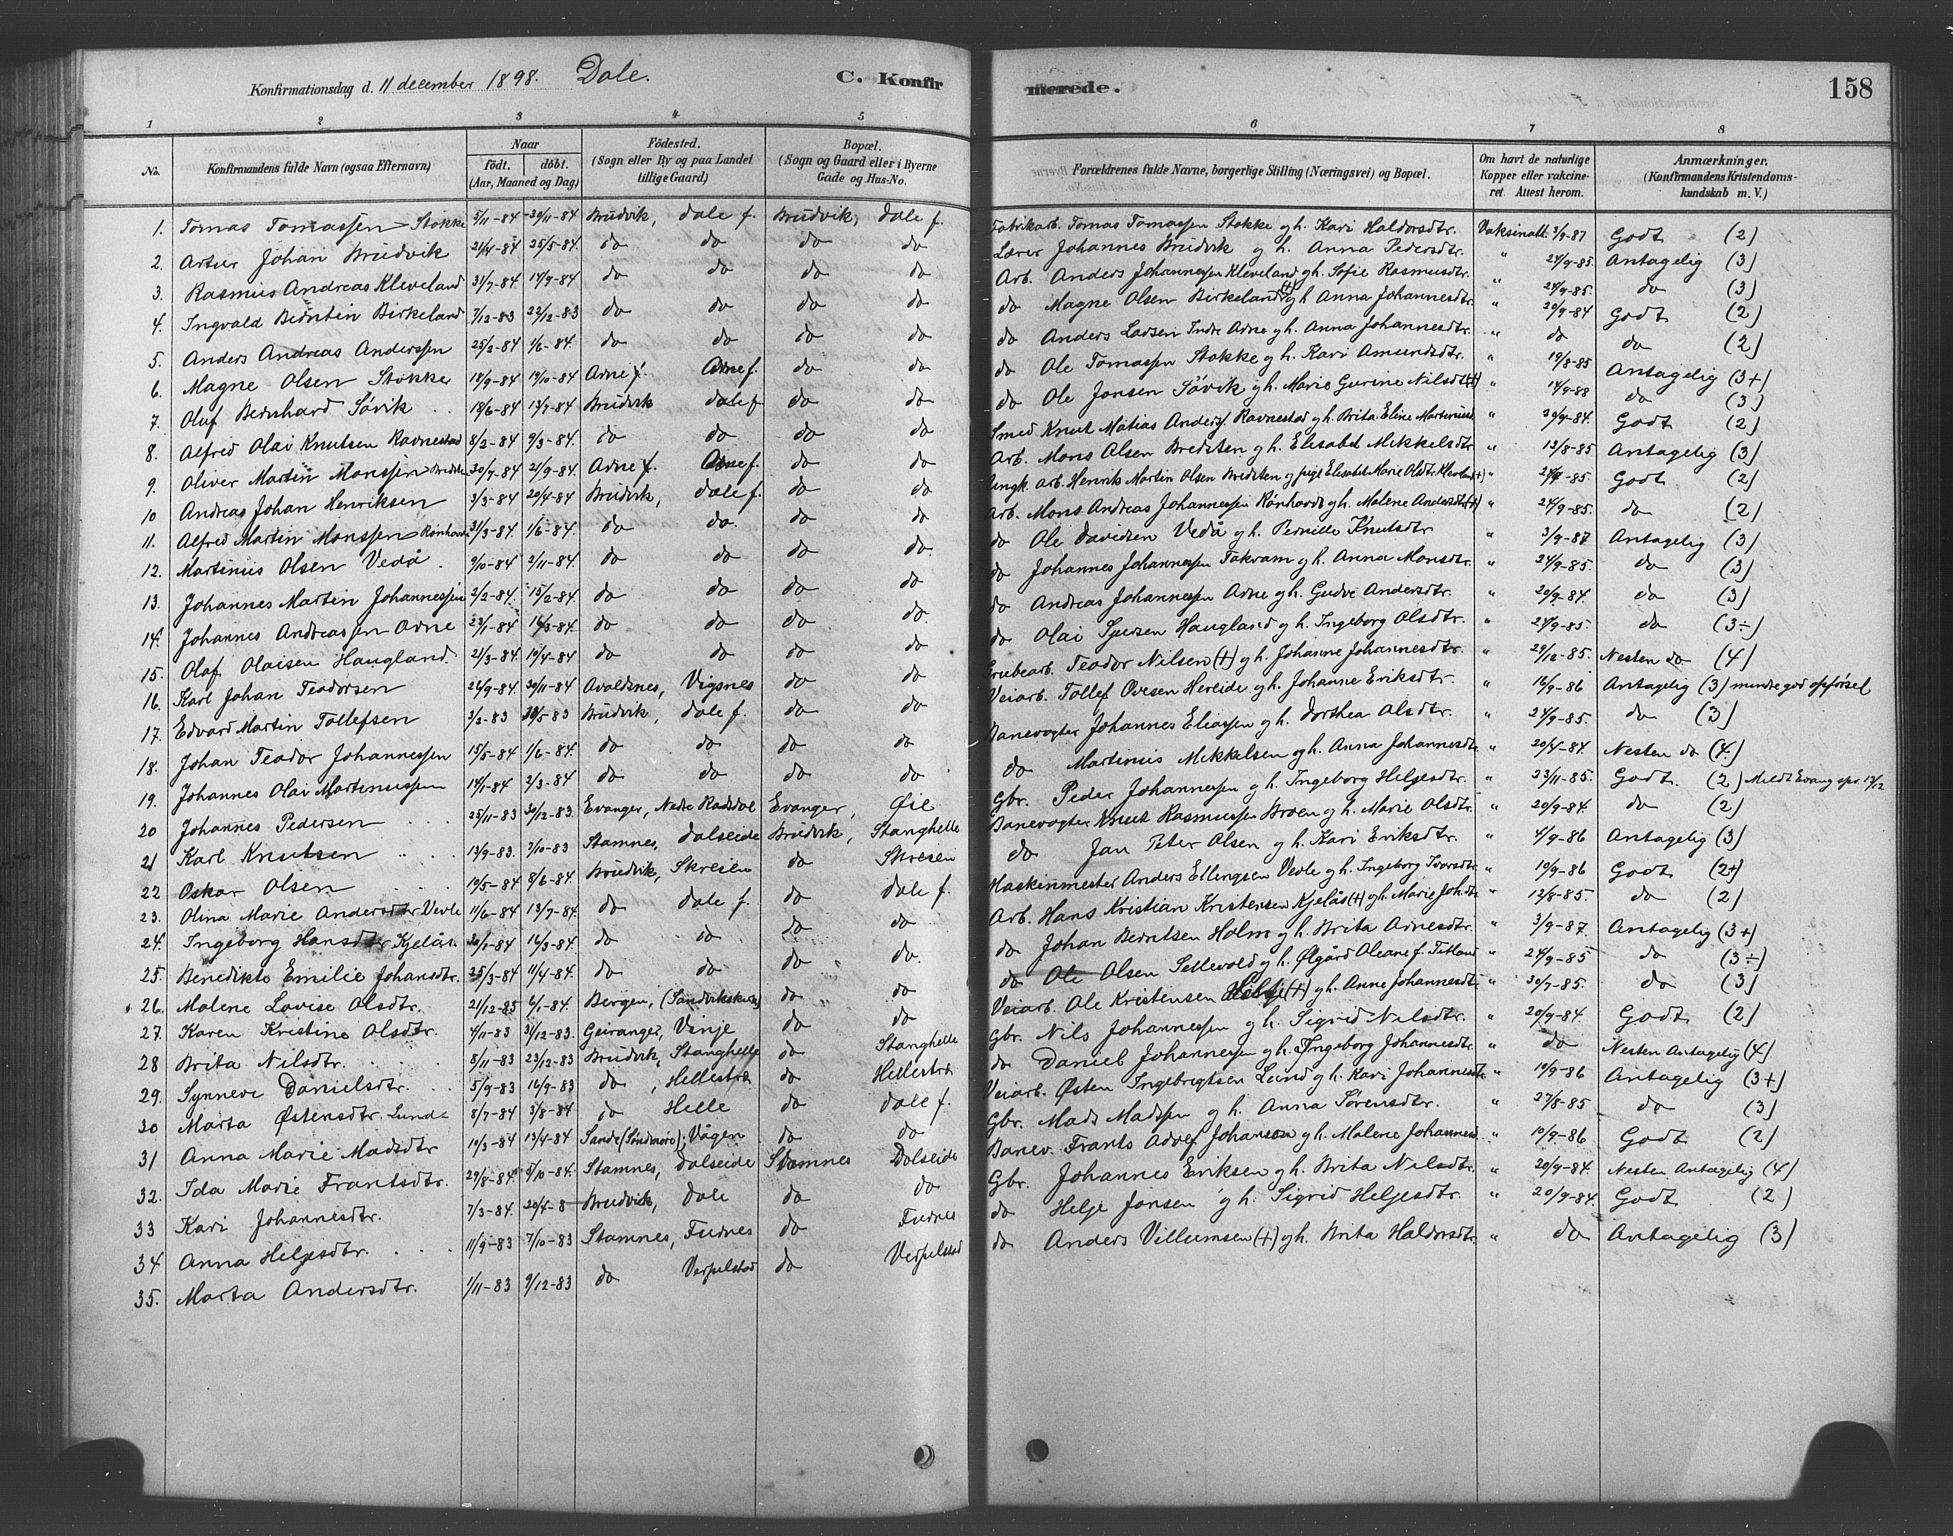 Konfirmationsdag d. 11 december 1898. Dale. C. Konfir merede. 158
1 2 3 4 5 6 7 8
No. Konfirmandens fulde Navn (ogsaa Efternavn) Naar født. døbt. (Aar, Maaned og Dag) Fødested. (Sogn eller By og paa Landet tillige Gaard) Bopæl. (Sogn og Gaard eller i Byerne Gade og Hus-No. Forældrenes fulde Navne, borgerlige Stilling (Næringsvei) og Bopæl. Om havt de naturlige Kopper eller vakcineret. Attest herom. Anmærkninger. (Konfirmandens Kristendomskundskab m. V.)
1. Tomas Tomassen Stokke 5/11-84 30/11-84 Brudvik, Dale f. Brudvik, Dale f. Fabrikarb. Tomas Tomassen Stokke og h. Kari Haldorsdtr. Vaksinatt. 3/9-87 Godt (2)
2. Artur Johan Brudvik 21/4-84 25/5-84 do do do do Lærer Johannes Brudvik og h. Anna Pedersdtr. " 24/9-85. Antagelig (3)
3. Rasmus Andreas Kleveland 31/7-84 14/9-84 do do do do Arb. Anders Johannessen Kleveland og h. Sofie Rasmusdtr. " 24/9-85. do (3)
4. Ingvald Berntin Birkeland 7/12-83 22/12-83 do do do do do Magne Olsen Birkeland (+) og h Anna Johannesdtr. " 20/9-84 Godt (2)
5. Anders Andreas Anderssen 25/2-84 1/6-84. do do do do do Anders Larsen Indre Arne og h. Anna Johannesdtr. " do do (2)
6. Magne Olsen Stokke 18/9-84 19/10-84 Arne f. Arne f. do do do Ole Tomassen Stokke og h. Kari Amundsdtr. " 19/8-85 Antagelig (3+)
7. Oluf Bernhard Søvik 18/6-84 13/7-84 Brudvik Dale f. do do do Ole Jonsen Søvik og h. Marie Gurine Nilsdtr (+) " 14/9-88 do (3)
8. Alfred Olai Knutsen Ravnestad 8/2-84 9/3-84. do do do do Smed Knut Matias Anders. Ravnestad og h. Brita Eline Martinusd. " 20/9-84. Godt (2)
9. Oliver Martin Monssen Bredsten 30/7-84 21/9-84 Arne f. Arne f. do do Arb. Mons Olsen Bredsten og h. Elisabet Mikkelsdtr " 12/8-85 Antagelig (3)
10 Andreas Johan Henriksen 3/3-84 20/4-84 Brudvik, Dale f. do do Ungk. arb. Henrik Martin Olsen Bredsten og pige Elisabet Marie Olsdtr. Kleveland (+) " 24/9-85 Godt (2)
11. Alfred Martin Monssen Rønhovde 31/3-84. 1/6-84. do do. do do Arb. Mons Andreas Johannessen Rønhovde og h. Malene Andersdtr (+) " 24/9-85. do (2)
12. Martinus Olsen Vedå 9/10-84 2/11-84 do do do do. do Ole Davidsen Vedå og h. Pernille Knutsdtr " 3/9-87 Antagelig (3)
13. Johannes Martin Johannessen 2/2-84. 15/2-84. do do do do do Johannes Johannessen Takvam og h. Anna Monsdtr. " 24/9-85. do (3)
14. Johannes Andreassen Arne 23/1-84 16/3-84. do do do do. do Andreas Johannessen Arne og h. Gudve Andersdtr. " 20/9-84. do (3)
15. Olaf Olaisen Haugland. 21/3-84. 10/4-84 do do do do do Olai Sjursen Haugland og h. Ingeborg Olsdtr. " 24/9-85. do (3÷)
16. Karl Johan Teodorsen 26/9-84. 30/11-84 Avaldsnes, Vigsnes do do Grubearb. Teodor Nilsen (+) og h. Johanne Johannesdtr. " 29/12-85. Nesten do (4)
17. Edvard Martin Tollefsen 3/2-83 /5-83 Brudvik, Dale f. do do Veiarb. Tollef Ovesen Hereide og h. Johanne Eriksdtr. " 16/9-86 Antagelig (3) mindre god opførsel
18. Johan Teodor Johannessen 15/5-84. 1/6-84. do do do do Banevogter Johannes Eliassen og h. Dorthea Olsdtr. " 24/9-85. do (3)
19. Johannes Olai Martinussen 14/1-84 2/3-84 do do do do do Martinius Mikkelsen og h. Anna Johannesdtr " 20/9-84 Nesten do (4.)
20 Johannes Pedersen 25/11-83 30/12-83. Evanger, Nedre Kaldal Evanger, Øie Gbr. Peder Johannessen og h. Ingeborg Helgesdtr. " 23/11-85. Godt. (2) Meldt Evang. spr. 12/12
21 Karl Knutsen 13/9-83. 7/10-83 Stamnes, Dalseide Brudvik, Stanghelle Banevogter Knut Rasmussen Broen og h. Marie Olsdtr. " 20/9-84. do (2)
22 Oskar Olsen 19/5-84 8/6-84. Brudvik, Skreien do Skreien do Jan Peter Olsen og h. Kari Eriksdtr. " 4/9-86 Antagelig (3)
23. Olina Marie Andersdtr. Vevle 11/6-84 13/7-84. do Dale f. do Dale f. Maskinmester Anders Ellingsen Vevle og h. Ingeborg Ivarsdtr. " 10/9-86 Godt (2+)
24. Ingeborg Hansdtr. Kjelås. 20/1-84 16/3-84. do do do do Arb. Hans Kristian Kristensen Kjelås (+) og h. Marie Joh.dtr. " 12/8-85. do (2)
25. Benedikte Emilie Johansdtr. 25/3-84 11/4-84. do do do do. do Johan Berntsen Holm og h. Brita Arnesdtr. " 3/9-87. Antagelig (3+)
26. Malene Lovise Olsdtr. 21/12-85 6/1-84. Bergen, (Sandvikskirken) do do do Ole Olsen Sellevold og h. Ølgård Oleane f. Titland " 24/9-85 do (3÷)
27. Karen Kristine Olsdtr. 4/11-83 31/12-83. Geiranger, Vinje do do Veiarb. Ole Kristensen (+) og h. Anne Johannesdtr " 30/7-85. do (3)
28 Brita Nilsdtr. 8/11-83 23/12-83 Brudvik, Stanghelle do Stanghelle Gbr. Nils Johannessen og h. Sigrid Nilsdtr. " 20/9-84. Godt (2)
29. Synneve Danielsdtr. 5/9-83 16/9-83 do, Hellestræ do Hellestræ do Daniel Johannessen og h. Ingeborg Johannesdtr. " do Nesten Antagelig (4)
30 Marta Østensdtr. Lunde 8/7-84 3/8-84 do Helle do Dale f. Veiarb. Østen Ingebrigtsen Lund og h. Kari Johannesdtr " 14/9-86 Antagelig (3+)
31 Anna Marie Madsdtr 10/3-84 13/4-84 Sande (Søndmøre), Vågen do do Gbr. Mads Madssen og h. Anna Sørensdtr. " 27/8-85 do (3)
32. Ida Marie Frantsdtr. 29/8-84. 5/10-84. Stamnes, Dalseide Stamnes Dalseide Banev. Frants Adolf Johanson og h. Malene Johannesd. " 10/9-86. Godt (2)
33 Kari Johannesdtr. 7/3-84. 20/4-8 Brudvik, Dale do do Gbr. Johannes Eriksen og h. Brita Nilsdtr. " 20/9-84. Nesten Antagelig (4)
34 Anna Helgesdtr. 11/9-83 7/10-83 Stamnes, Furnes do Furnes do Helje Jonsen og h. Sigrid Helgesdtr. " 20/9-84. Godt (2)
35. Marta Andersdtr. 1/11-83 9/12-83 do Verpelstad do Verpelstad do Anders Villumsen (+) og h. Brita Haldorsdtr. " do Antagelig (3)